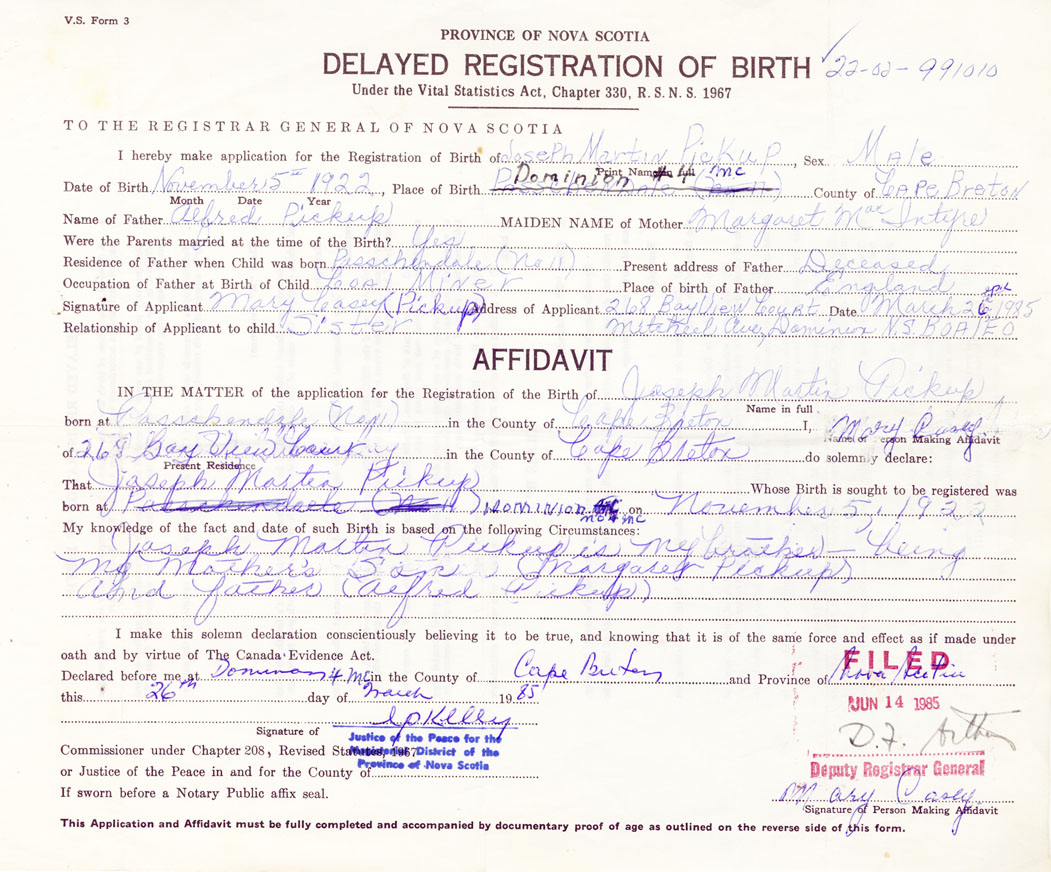 V.S. Form 3
PROVINCE OF NOVA SCOTIA
DELAYED REGISTRATION OF BIRTH 22-02-991010
Under the Vital Statistics Act, Chapter 330, R.S.N.S. 1967
TO THE REGISTRAR GENERAL OF NOVA SCOTIA
I hereby make application for the Registration of Birth of Joseph Martin Pickup, Sex Male
Print Name in full
Date of Birth November 5th 1922, Place of Birth Dominion #4 MC County of Cape Breton
Month Date Year
Name of Father Alfred Pickup MAIDEN NAME of Mother Margaret MacIntyre
Were the Parents married at the time of the Birth? Yes
Residence of Father when Child was born Passchendale (No 11) Present address of Father Deceased
Occupation of Father at Birth of Child Coal Miner Place of birth of Father England
Signature of Applicant Mary Casey (Pickup) Address of Applicant 268 Bay View Court Date March 26 1985
Relationship of Applicant to child Sister Mitchell Ave, Dominion N.S. B0A 1E0
AFFIDAVIT
IN THE MATTER of the application for the Registration of the Birth of Joseph Martin Pickup
Name in full
born at Passchendale in the County of Cape Breton I, Mary Casey
Name of Person Making Affidavit
of 268 Bay View Court in the County of Cape Breton do solemnly declare:
Present Residence
That Joseph Martin Pickup Whose Birth is sought to be registered was
born at Dominion MC #4 MC on November 5, 1922
My knowledge of the fact and date of such Birth is based on the following Circumstances:
Joseph Martin Pickup is my brother - being
my Mother's Son (Margaret Pickup)
And father (Alfred Pickup)
I make this solemn declaration conscientiously believing it to be true, and knowing that it is of the same force and effect as if made under
oath and by virtue of The Canada Evidence Act.
Declared before me at Dominion #4 MC in the County of Cape Breton and Province of Nova Scotia
FILED
this 26th day of March 1985
JUN 14 1985
Signature of
Justice of the Peace for the
Commissioner under Chapter 208, Revised Statutes, 1967
District of the
Province of Nova Scotia
D.F. Arthur
Deputy Registrar General
or Justice of the Peace in and for the County of
If sworn before a Notary Public affix seal.
Mary Casey
Signature of Person Making Affidavit
This Application and Affidavit must be fully completed and accompanied by documentary proof of age as outlined on the reverse side of this form.